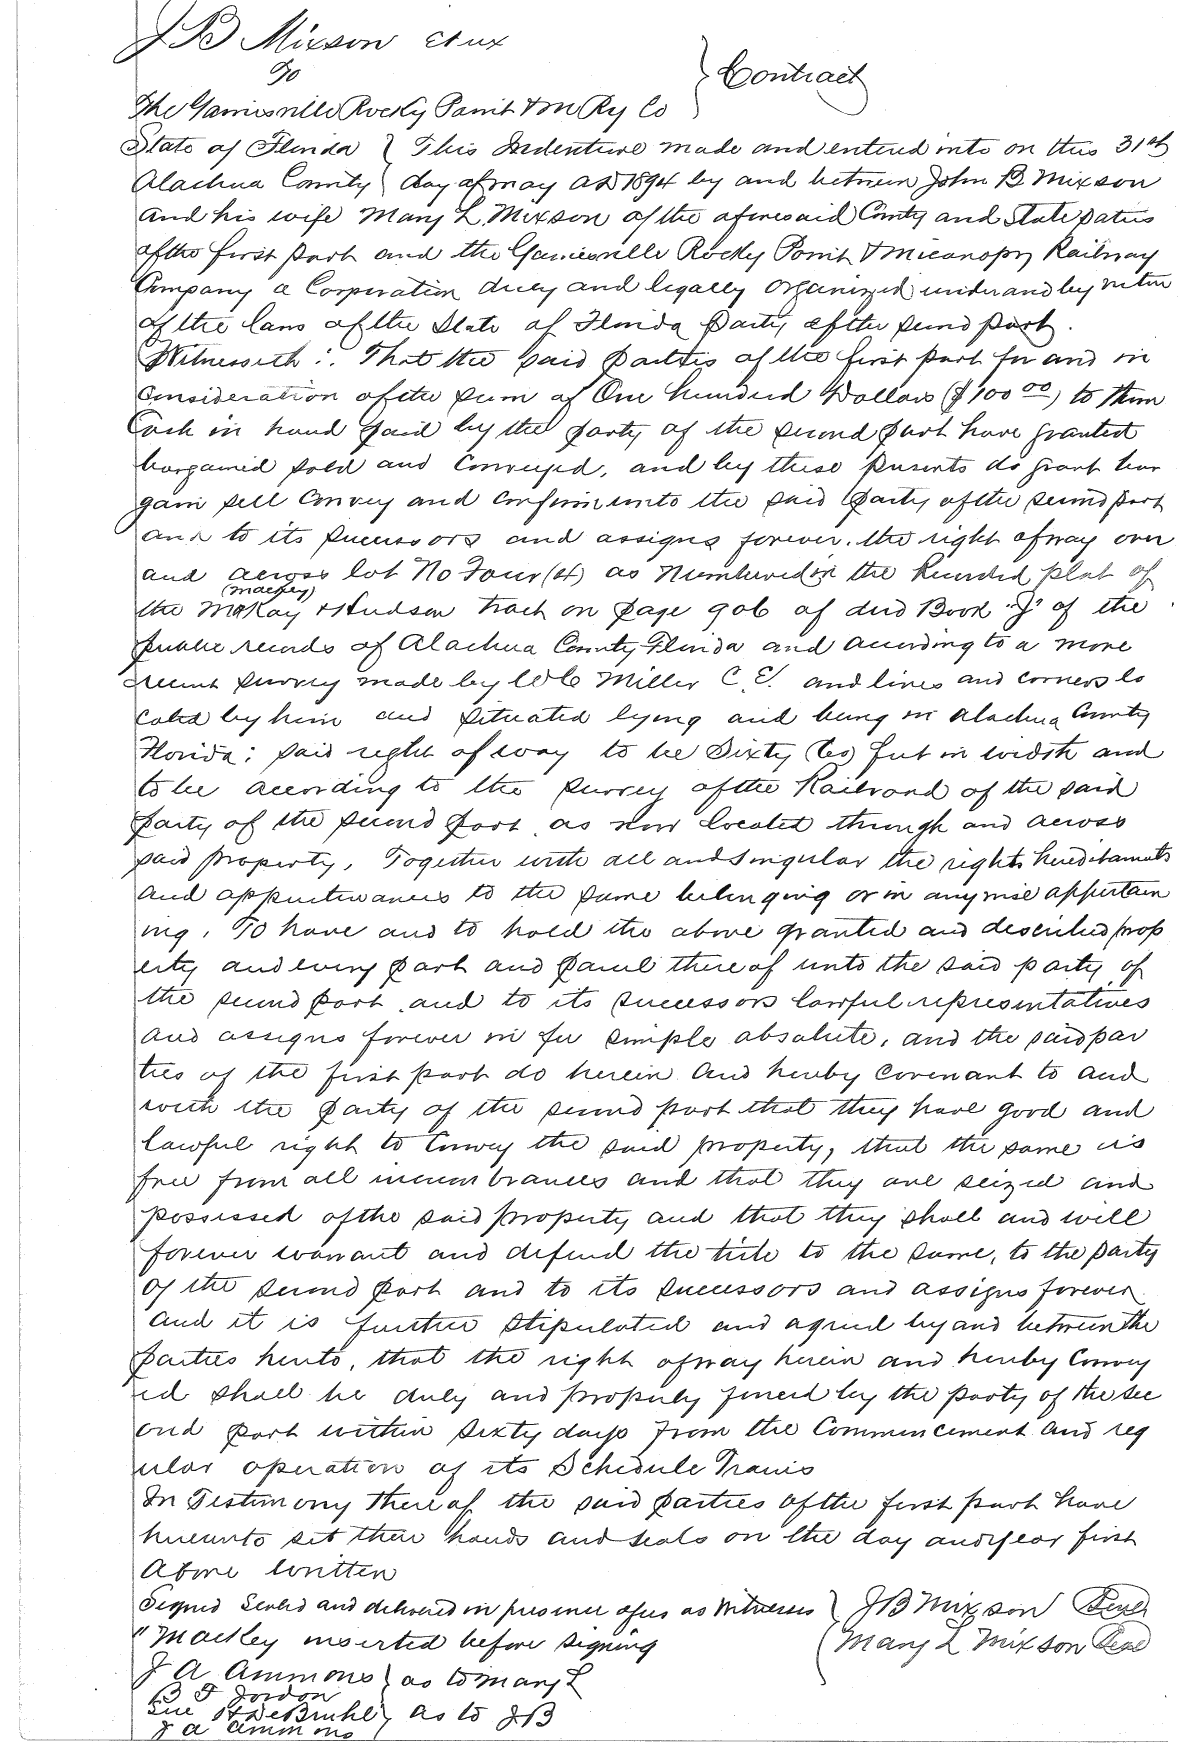 J B Mixson et ux
To
Contract
The Gainesville Rocky Point & M Ry Co
State of Florida } This Indenture made and entered into on this 31st
Alachua County } day of May AD 1894 by and between John B Mixson
and his wife Mary L Mixson of the aforesaid County and State parties
of the first part and the Gainesville Rocky Point & Micanopy Railway
Company a Corporation duly and legally organized under and by virtue
of the laws of the State of Florida party of the second part.
Witnesseth: That the said parties of the first part for and in
consideration of the sum of One hundred Dollars ($100.00) to them
Cash in hand paid by the party of the second part have granted
bargained sold and conveyed, and by these presents do grant bar
gain sell convey and confirm unto the said party of the second part
and to its successors and assigns forever. the right of way over
and across lot No Four (4) as numbered in the Recorded plat of
(Mackey)
the McKay & Hudson tract on page 906 of deed Book "J" of the
public records of Alachua County Florida and according to a more
recent survey made by W C Miller C. E. and lines and corners lo
cated by him and situated lying and being in Alachua County
Florida; said right of way to be Sixty (60) feet in width and
to be according to the survey of the Railroad of the said
party of the second part as now located through and across
said property, Together with all and singular the rights hereditaments
and appurtenances to the same belonging or in anywise appertain
ing. To have and to hold the above granted and described prop
erty and every part and parcel thereof unto the said party of
the second part and to its successors lawful representatives
and assigns forever in fee simple absolute, and the said par
ties of the first part do herein and hereby covenant to and
with the party of the second part that they have good and
lawful right to convey the said property, that the same is
free from all incumbrances and that they are seized and
possessed of the said property and that they shall and will
forever warrant and defend the title to the same, to the party
of the second part and to its successors and assigns forever
and it is further stipulated and agreed by and between the
parties hereto, that the right of way herein and hereby convey
ed shall be duly and properly fenced by the party of the sec
ond part within sixty days from the commencement and reg
ular operation of its Schedule Trains
In Testimony thereof the said parties of the first part have
hereunto set their hands and seals on the day and year first
above written
Signed Sealed and delivered in presence of us as witnesses } J B Mixson Seal
"Mackey inserted before signing ( Mary L Mixson Seal
J A Ammons } as to Mary L
B F Jordon
Sue H DeBruhl } as to J B
J A Ammons